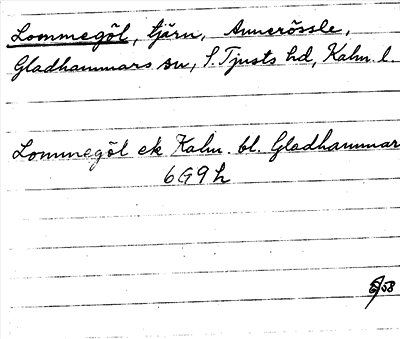 Lommegöl, tjärn, Annerössle,
Gladhammars sn, S. Tjusts hd, Kalm. l.
Lommegöl ek Kalm. bl. Gladhammar
6G9h